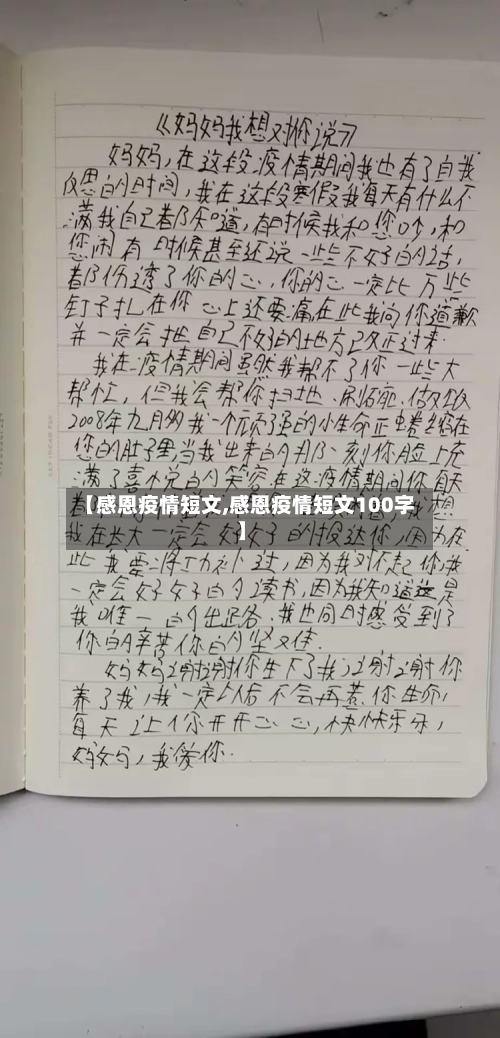 《妈妈我想对你说》
妈妈,在这段疫情期间我也有了自我
反思的时间,我在这段寒假我每天有什么不
满我自己都知道,有时候我和您吵,和
您闹有时候甚至还说一些不好的话,
都伤透了你的心,你的心一定比万些
钉子扎在你心上还要痛在此我向你道歉
并一定会把自己不好的地方改正过来.
我在疫情期间虽然我帮不了你一些大
帮忙,但我会帮你扫地、刷碗、做饭
2008年九月的我一个顽强的小生命正蜷缩在
您的肚子里,当我出来的那一刻你脸上充
满了喜悦的笑容在这疫情期间你每天
【感恩疫情短文,感恩疫情短文100字
】
我在长大一定会好好的报达你,因为在
些我要将功补过,因为我对不起你,我
一定会好好的读书,因为我知道这是
我唯一的出路,我也同时感受到了
你的辛苦你的坚
妈妈谢谢你生下了我,谢谢你
养了我,我一定以后不会再惹你生气,
每天让你开开心心,快快乐乐,
妈妈,我爱你.